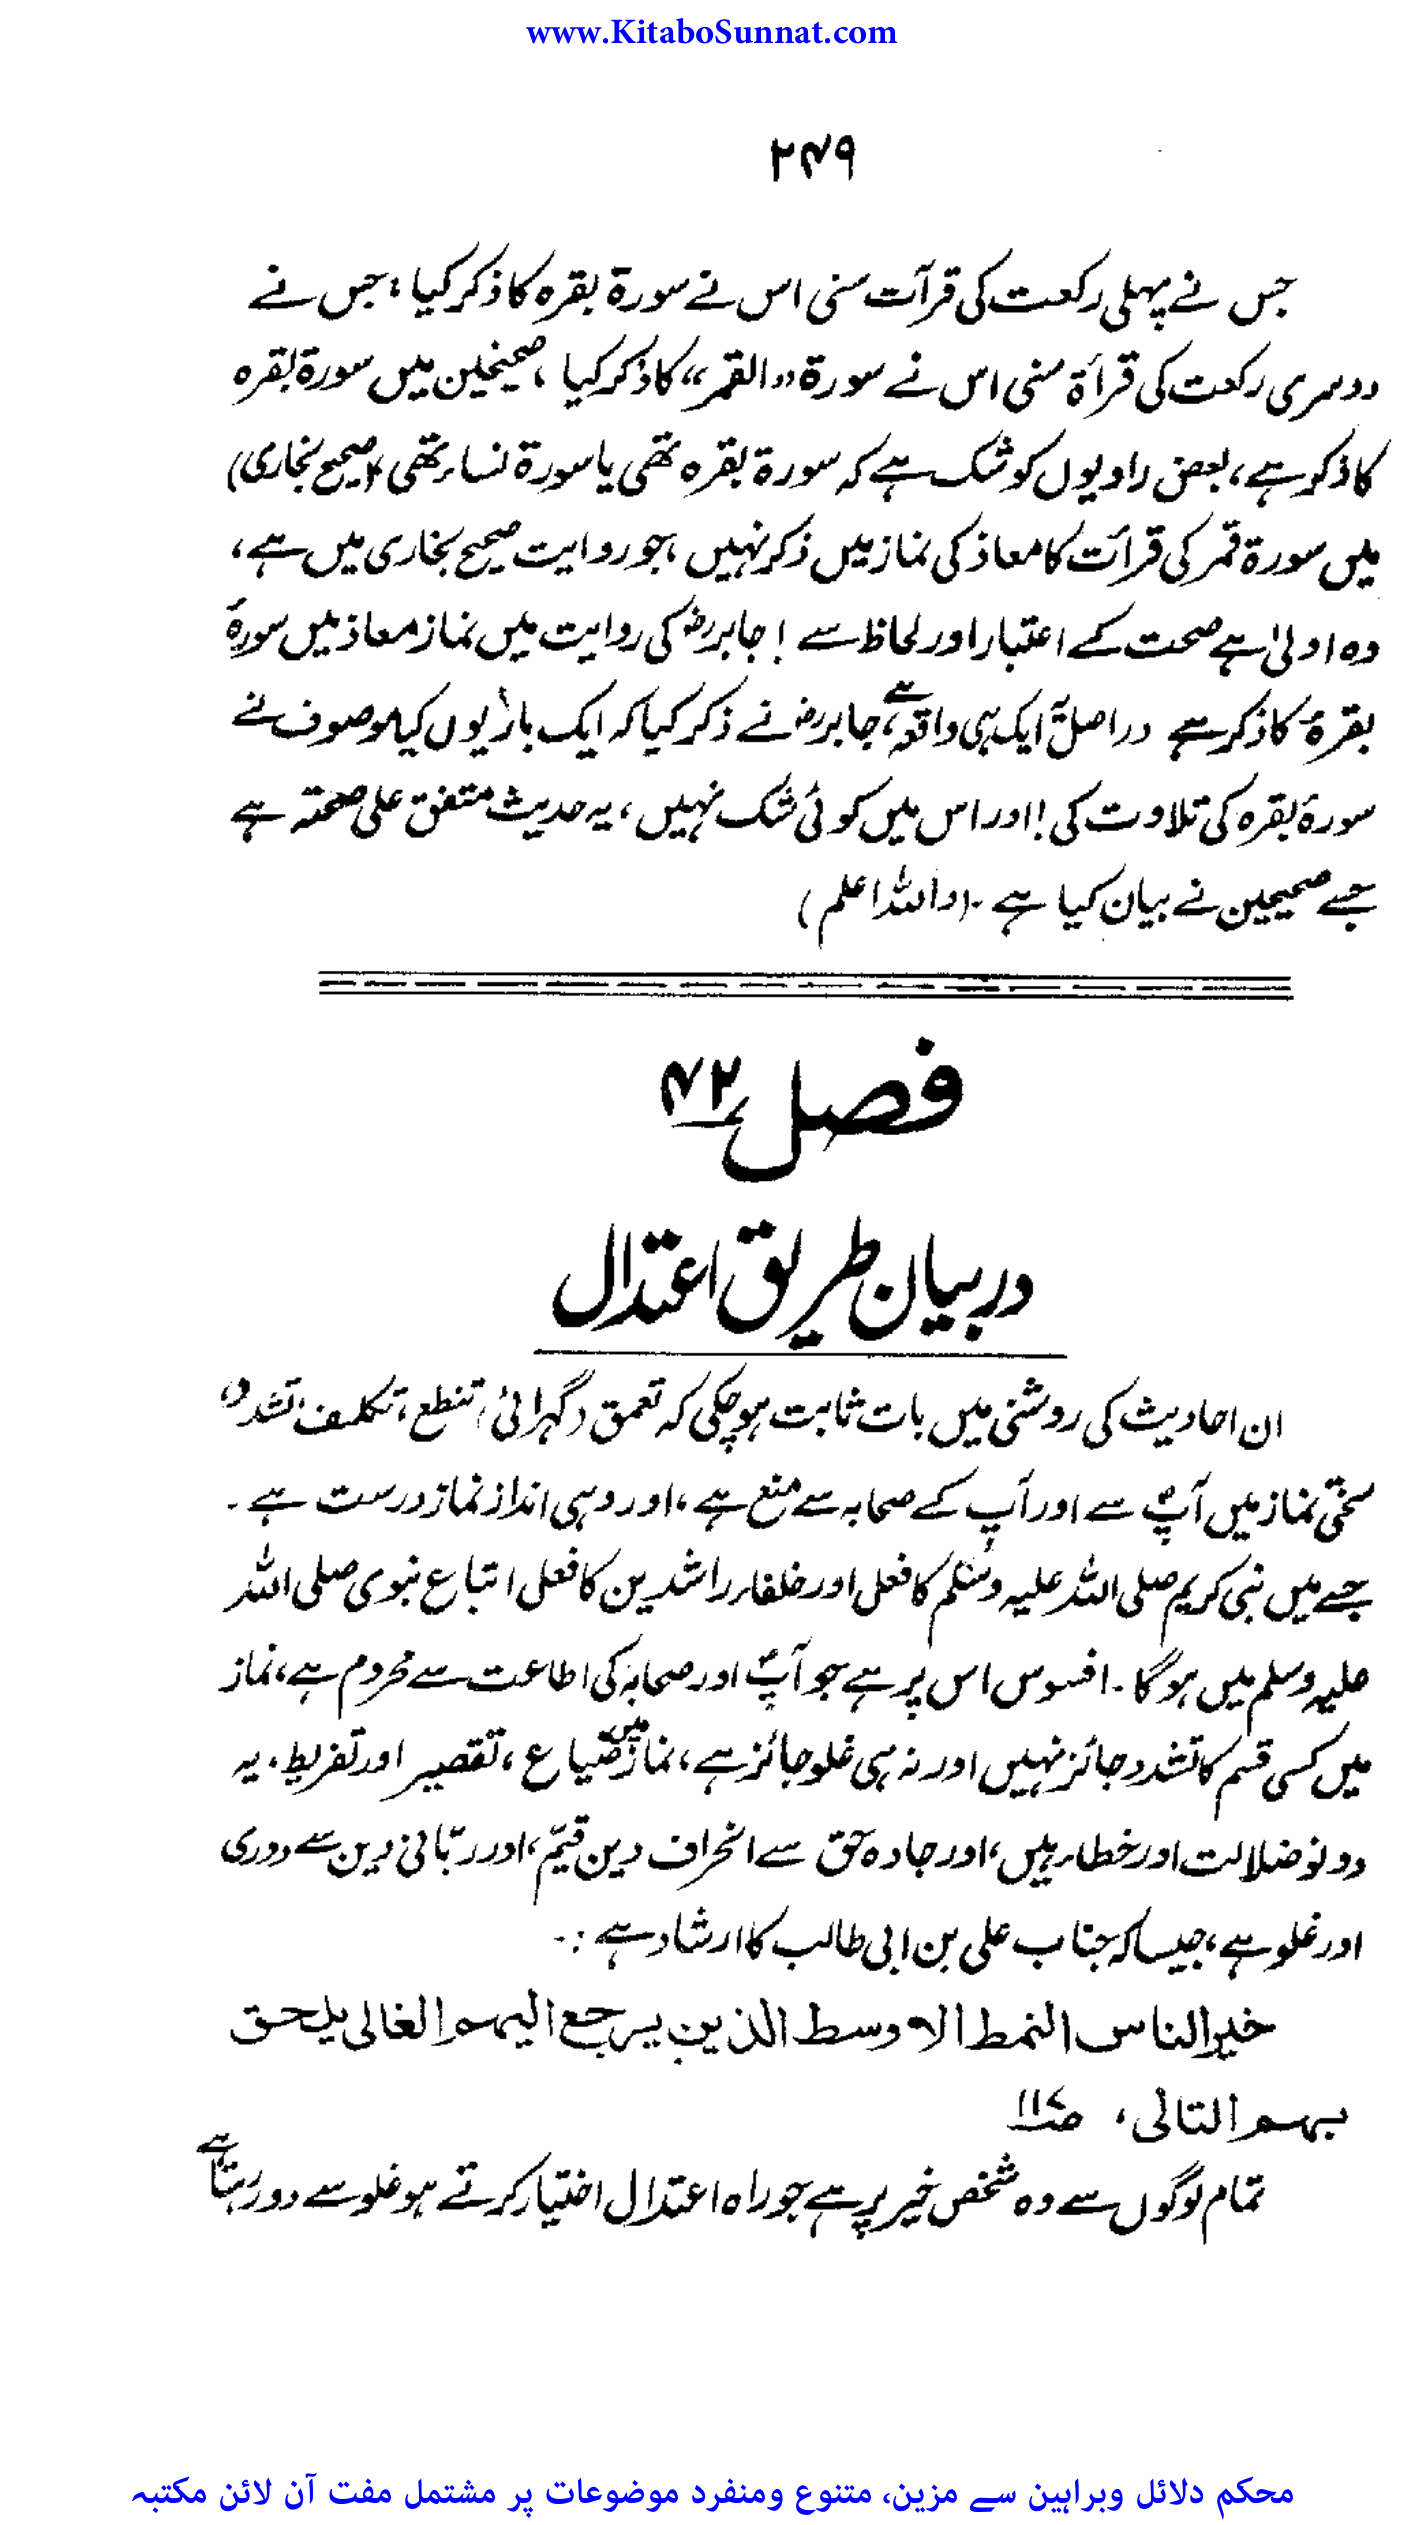 www.KitaboSunnat.com
۲۴۹
جس نے پہلی رکعت کی قرآت سنی اس نے سورۃ بقرہ کا ذکر کیا؛ جس نے
دوسری رکعت کی قرأۃ سنی اس نے سورۃ "القمر" کا ذکر کیا، صحیحین میں سورۃ بقرہ
کا ذکر ہے، بعض راویوں کو شک ہے کہ سورۃ بقرہ تھی یا سورۃ نساء تھی، (صحیح بخاری)
میں سورۃ قمر کی قرأت کا معاذ کی نماز میں ذکر نہیں، جو روایت صحیح بخاری میں ہے،
وہ اولیٰ ہے صحت کے اعتبار اور لحاظ سے! جابرؓ کی روایت میں نماز معاذ میں سورۂ
بقرۂ کا ذکر ہے دراصل ایک ہی واقعہ ہے، جابرؓ نے ذکر کیا کہ ایک بار یوں کیا موصوف نے
سورۂ بقرہ کی تلاوت کی! اور اس میں کوئی شک نہیں، یہ حدیث متفق علی صحتہ ہے
جسے صحیحین نے بیان کیا ہے۔ (واللہ اعلم)
فصل ۴۲
در بیان طریق اعتدال
ان احادیث کی روشنی میں بات ثابت ہو چکی کہ تعمق (گہرائی) تنطع، تکلف، تشدد،
سختی نماز میں آپؐ سے اور آپ کے صحابہ سے منع ہے، اور وہی انداز نماز درست ہے۔
جسے میں نبی کریم صلی اللہ علیہ وسلم کا فعل اور خلفاء راشدین کا فعل اتباع نبوی صلی اللہ
علیہ وسلم میں ہو گا۔ افسوس اس پر ہے جو آپؐ اور صحابہؓ کی اطاعت سے محروم ہے، نماز
میں کسی قسم کا تشدد جائز نہیں اور نہ ہی غلو جائز ہے، نماز میں ضیاع، تقصیر اور تفریط، یہ
دونو ضلالت اور خطاء ہیں، اور جادہ حق سے انحراف دین قیّم، اور ربّانی دین سے دوری
اور غلو ہے، جیسا کہ جناب علی بن ابی طالب کا ارشاد ہے :۔
خیر الناس النمط الاوسط الذین یرجع الیہم الغالی یلحق
بہم التالی، ص۱۱۷
تمام لوگوں سے وہ شخص خیر پر ہے جو راہ اعتدال اختیار کرتے ہو غلو سے دور رہتا ہے
محکم دلائل وبراہین سے مزین، متنوع ومنفرد موضوعات پر مشتمل مفت آن لائن مکتبہ